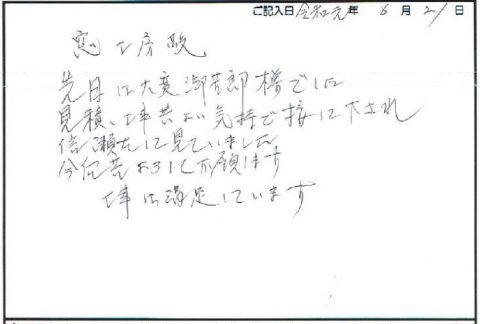 ご記入日 令和元年 8月21日
窓工房殿
先日は大変御苦労様でした
見積、工事共よい気持で接して下され
信頼して見ていました
今后共よろしくお願います
工事は満足しています